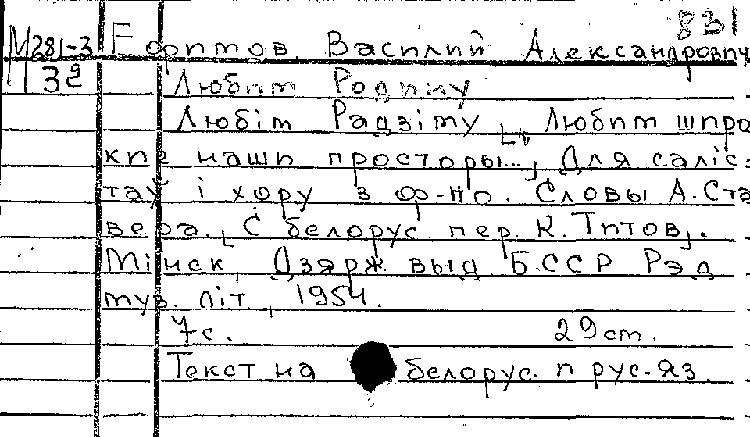 831
М281-3 Ефимов, Василий Александрович
32 Любим Родину
Любім Радзіму „Любим широ-
кие наши просторы..." Для саліс-
таў і хору з ф-но. Словы А. Ста-
вера. [С белорус. пер. К. Титов].
Мінск, Дзярж. выд. БССР Рэд.
муз. літ., 1954.
7с. 29 cm.
Текст на белорус. и рус. яз.